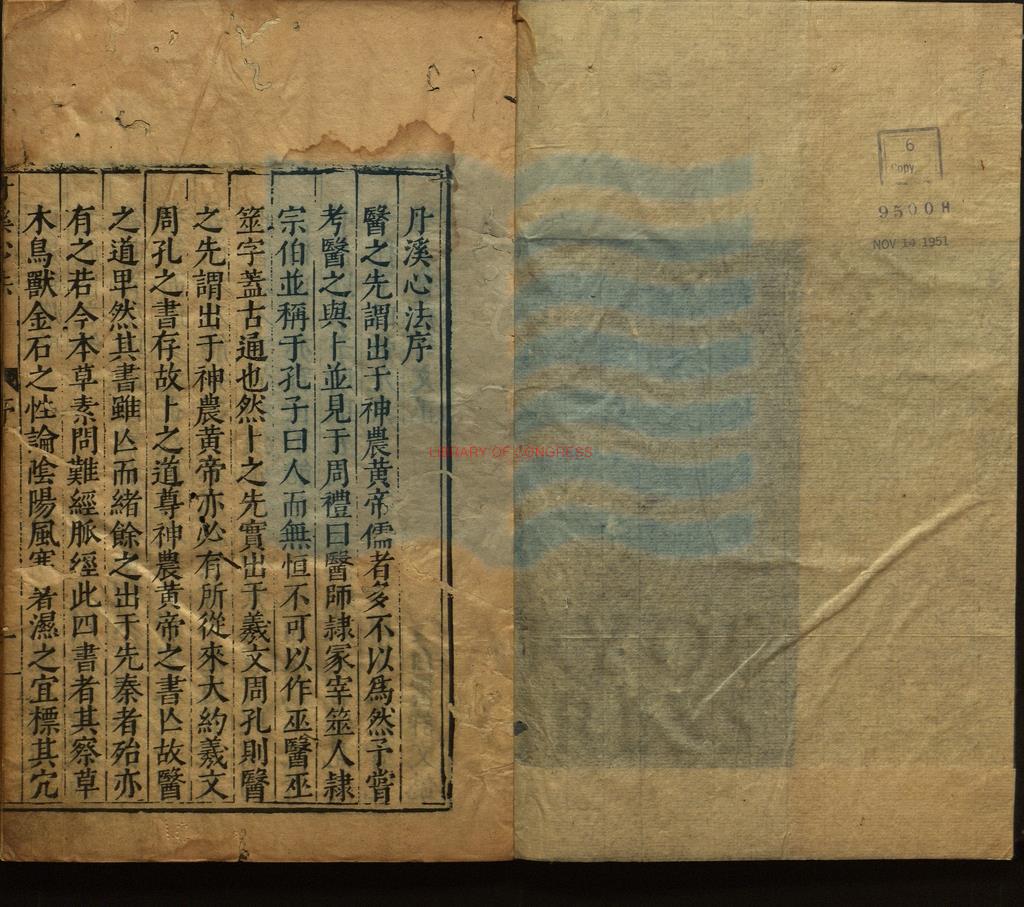 丹溪心法序
醫之先謂出于神農黄帝儒者多不以爲然予嘗
考醫之與卜並見于周禮曰醫師隷冡宰筮人隷
宗伯並稱于孔子曰人而無恒不可以作巫醫巫
筮字蓋古通也然卜之先實出于羲文周孔則醫
之先謂出于神農黄帝亦必有所從來大約羲文
周孔之書存故卜之道尊神農黄帝之書亾故醫
之道卑然其書雖亾而緒餘之出于先秦者殆亦
有之若今本草素問難經脈經此四書者其察草
木鳥獸金石之性論隂陽風寒暑濕之宜標其穴
序
一
6
Copy
9500 H
NOV 14 1951
LIBRARY OF CONGRESS